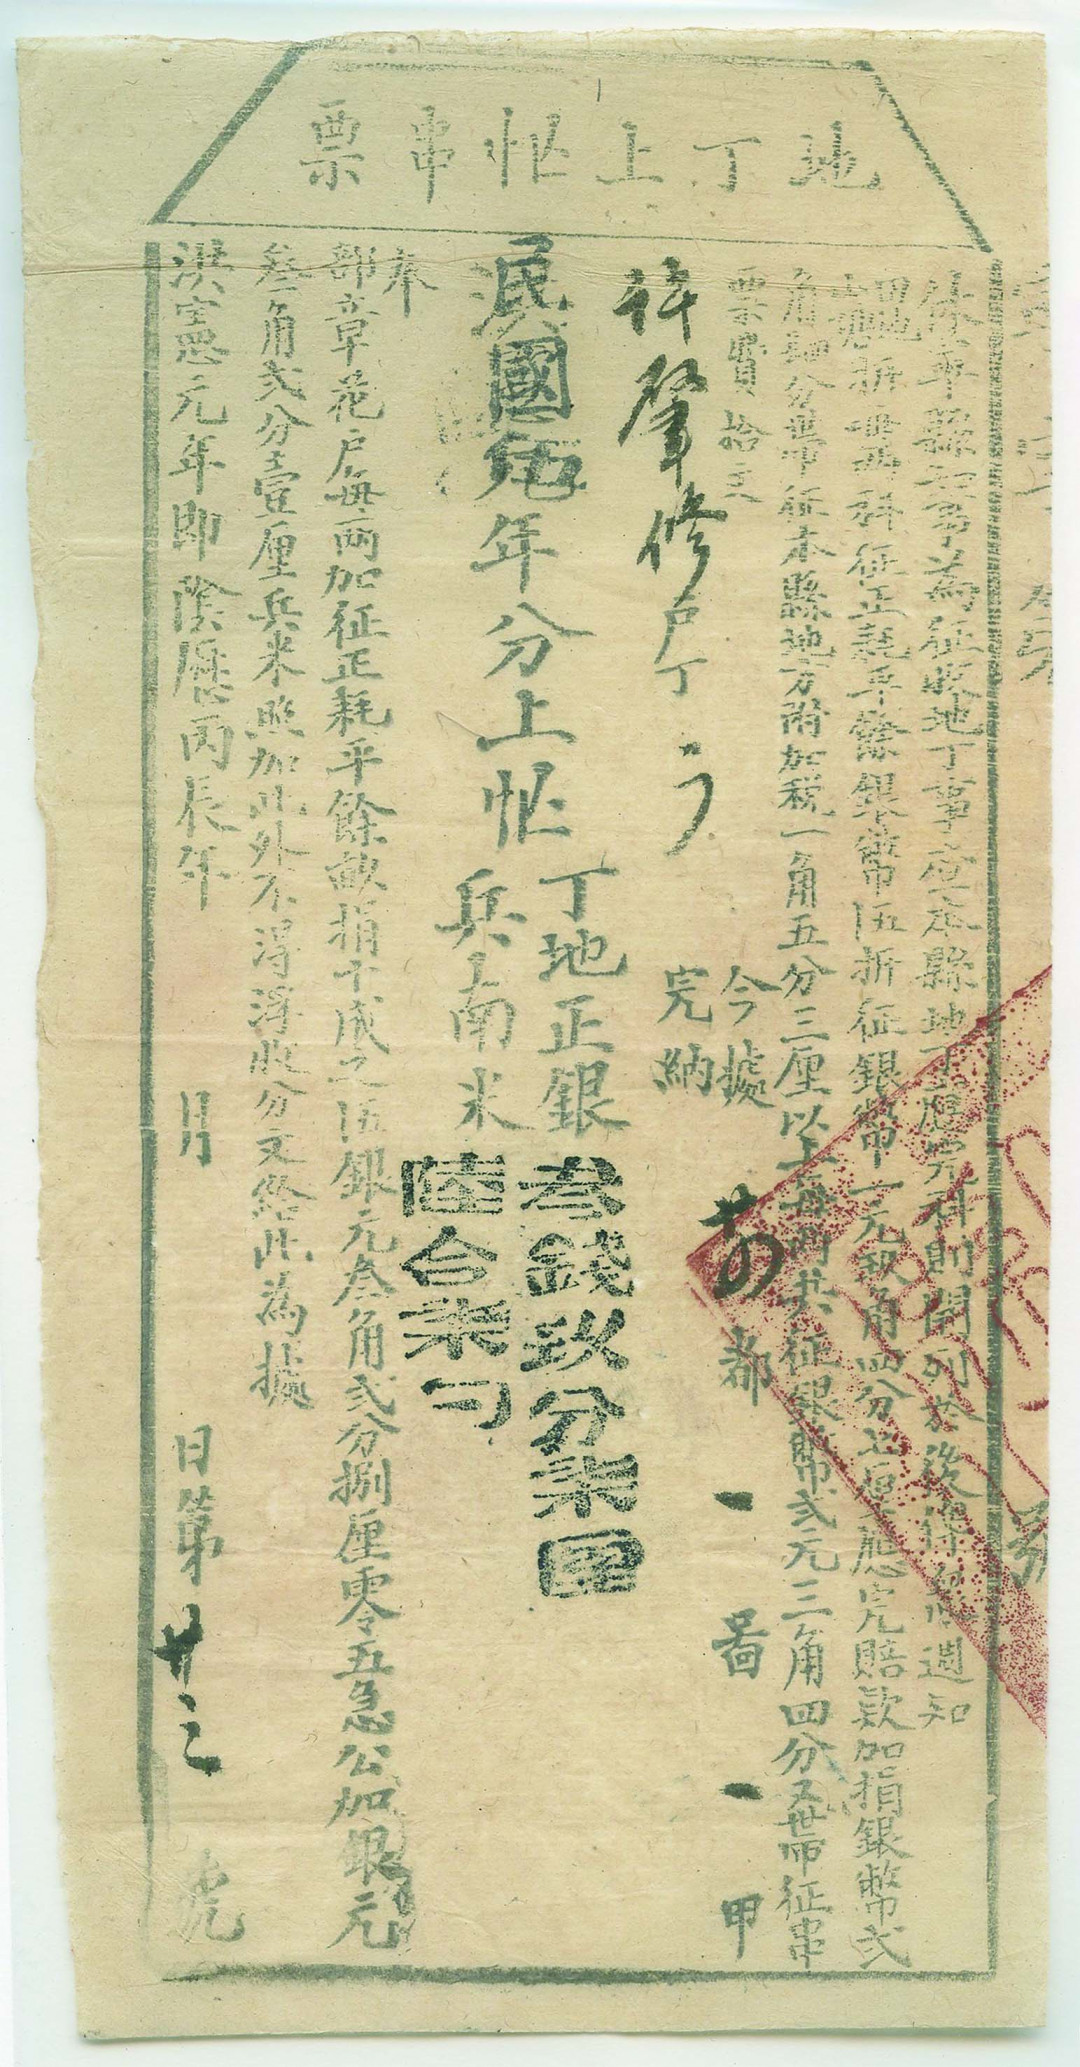 地丁上忙串票
休寧縣知事為征收地丁事查本縣地丁應完科則開列於後俾知週知
四地折每兩科征正耗平餘銀幣伍折征銀幣一元玖角四分上應完賠款加捐銀幣弍
角四分帶征本縣地方附加稅一角五分三厘以上每兩共征銀幣弍元三角四分又帶征串
票費拾文
今據
都一圖一甲
許肇修戶丁
完納
民國伍年分上忙
丁地正銀叁錢玖分柒厘
兵南米陸合柒勺
奉
部章花戶每兩加征正耗平餘畝捐十成之伍銀元叁角弍分捌厘零五急公加銀元
叁角弍分壹厘兵米照加此外不得浮收分文給此為據
洪憲元年即陰曆丙辰年 月 日第廿三號
號